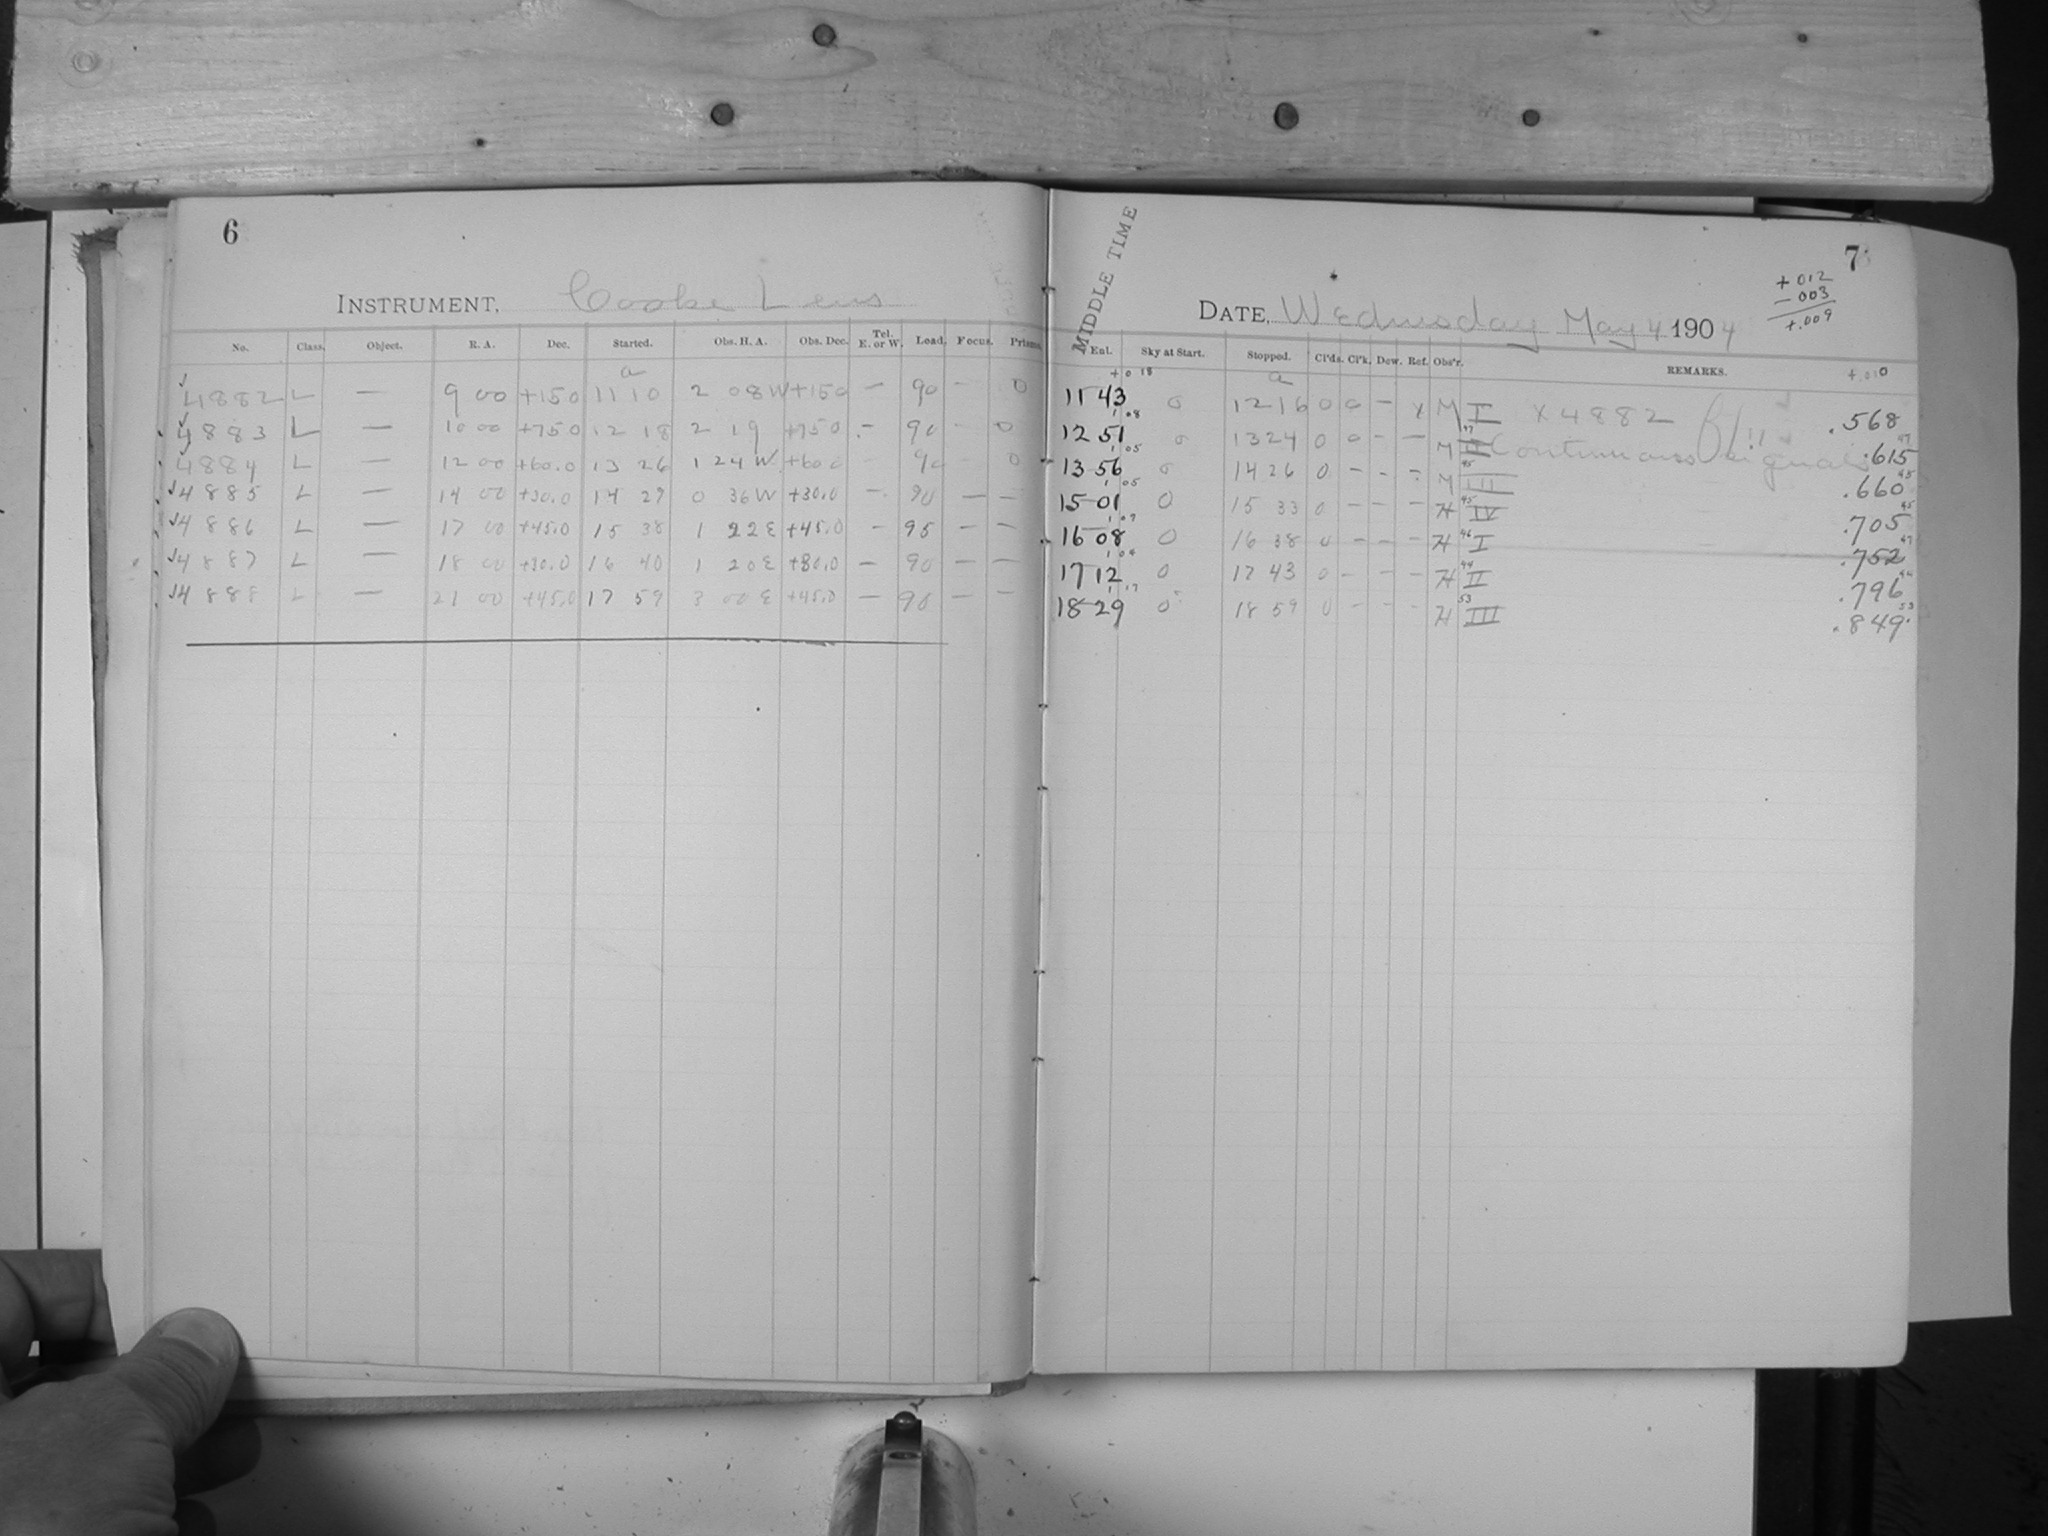 6
INSTRUMENT, Cooke Lens
No. Class. Object. R. A. Dec. Started. Obs. H. A. Obs. Dec. Tel. E. or W. Load. Focus. Prisms.
a
4882 L — 9 00 +15.0 11 10 2 08 W +15.0 — 90 — 0
4883 L — 10 00 +75.0 12 18 2 19 +75.0 — 90 — 0
4884 L — 12 00 +60.0 13 26 1 24 W +60.0 — 90 — 0
4885 L — 14 00 +30.0 14 29 0 36 W +30.0 — 90 — —
4886 L — 17 00 +45.0 15 38 1 22 E +45.0 — 95 — —
4887 L — 18 00 +30.0 16 40 1 20 E +80.0 — 90 — —
4888 L — 21 00 +45.0 17 59 3 00 E +45.0 — 90 — —
7
+.012
-.003
+.009
MIDDLE TIME
DATE, Wednesday May 4 1904
Enl. Sky at Start. Stopped. Cl'ds. Cl'k. Dew. Ref. Obs'r. REMARKS. +.010
+0 18 a
11 43 0 12 16 0 0 — x M I x 4882 .568
1 08 47 47
12 51 0 13 24 0 0 — — M II Continuous signals .615
1 05 45 45
13 56 0 14 26 0 — — — M III .660
1 05 45 45
15 01 0 15 33 0 — — — H IV .705
1 07 46 47
16 08 0 16 38 0 — — — H I .752
1 04 44 44
17 12 0 17 43 0 — — — H II .796
1 17 53 53
18 29 0 18 59 0 — — — H III .849